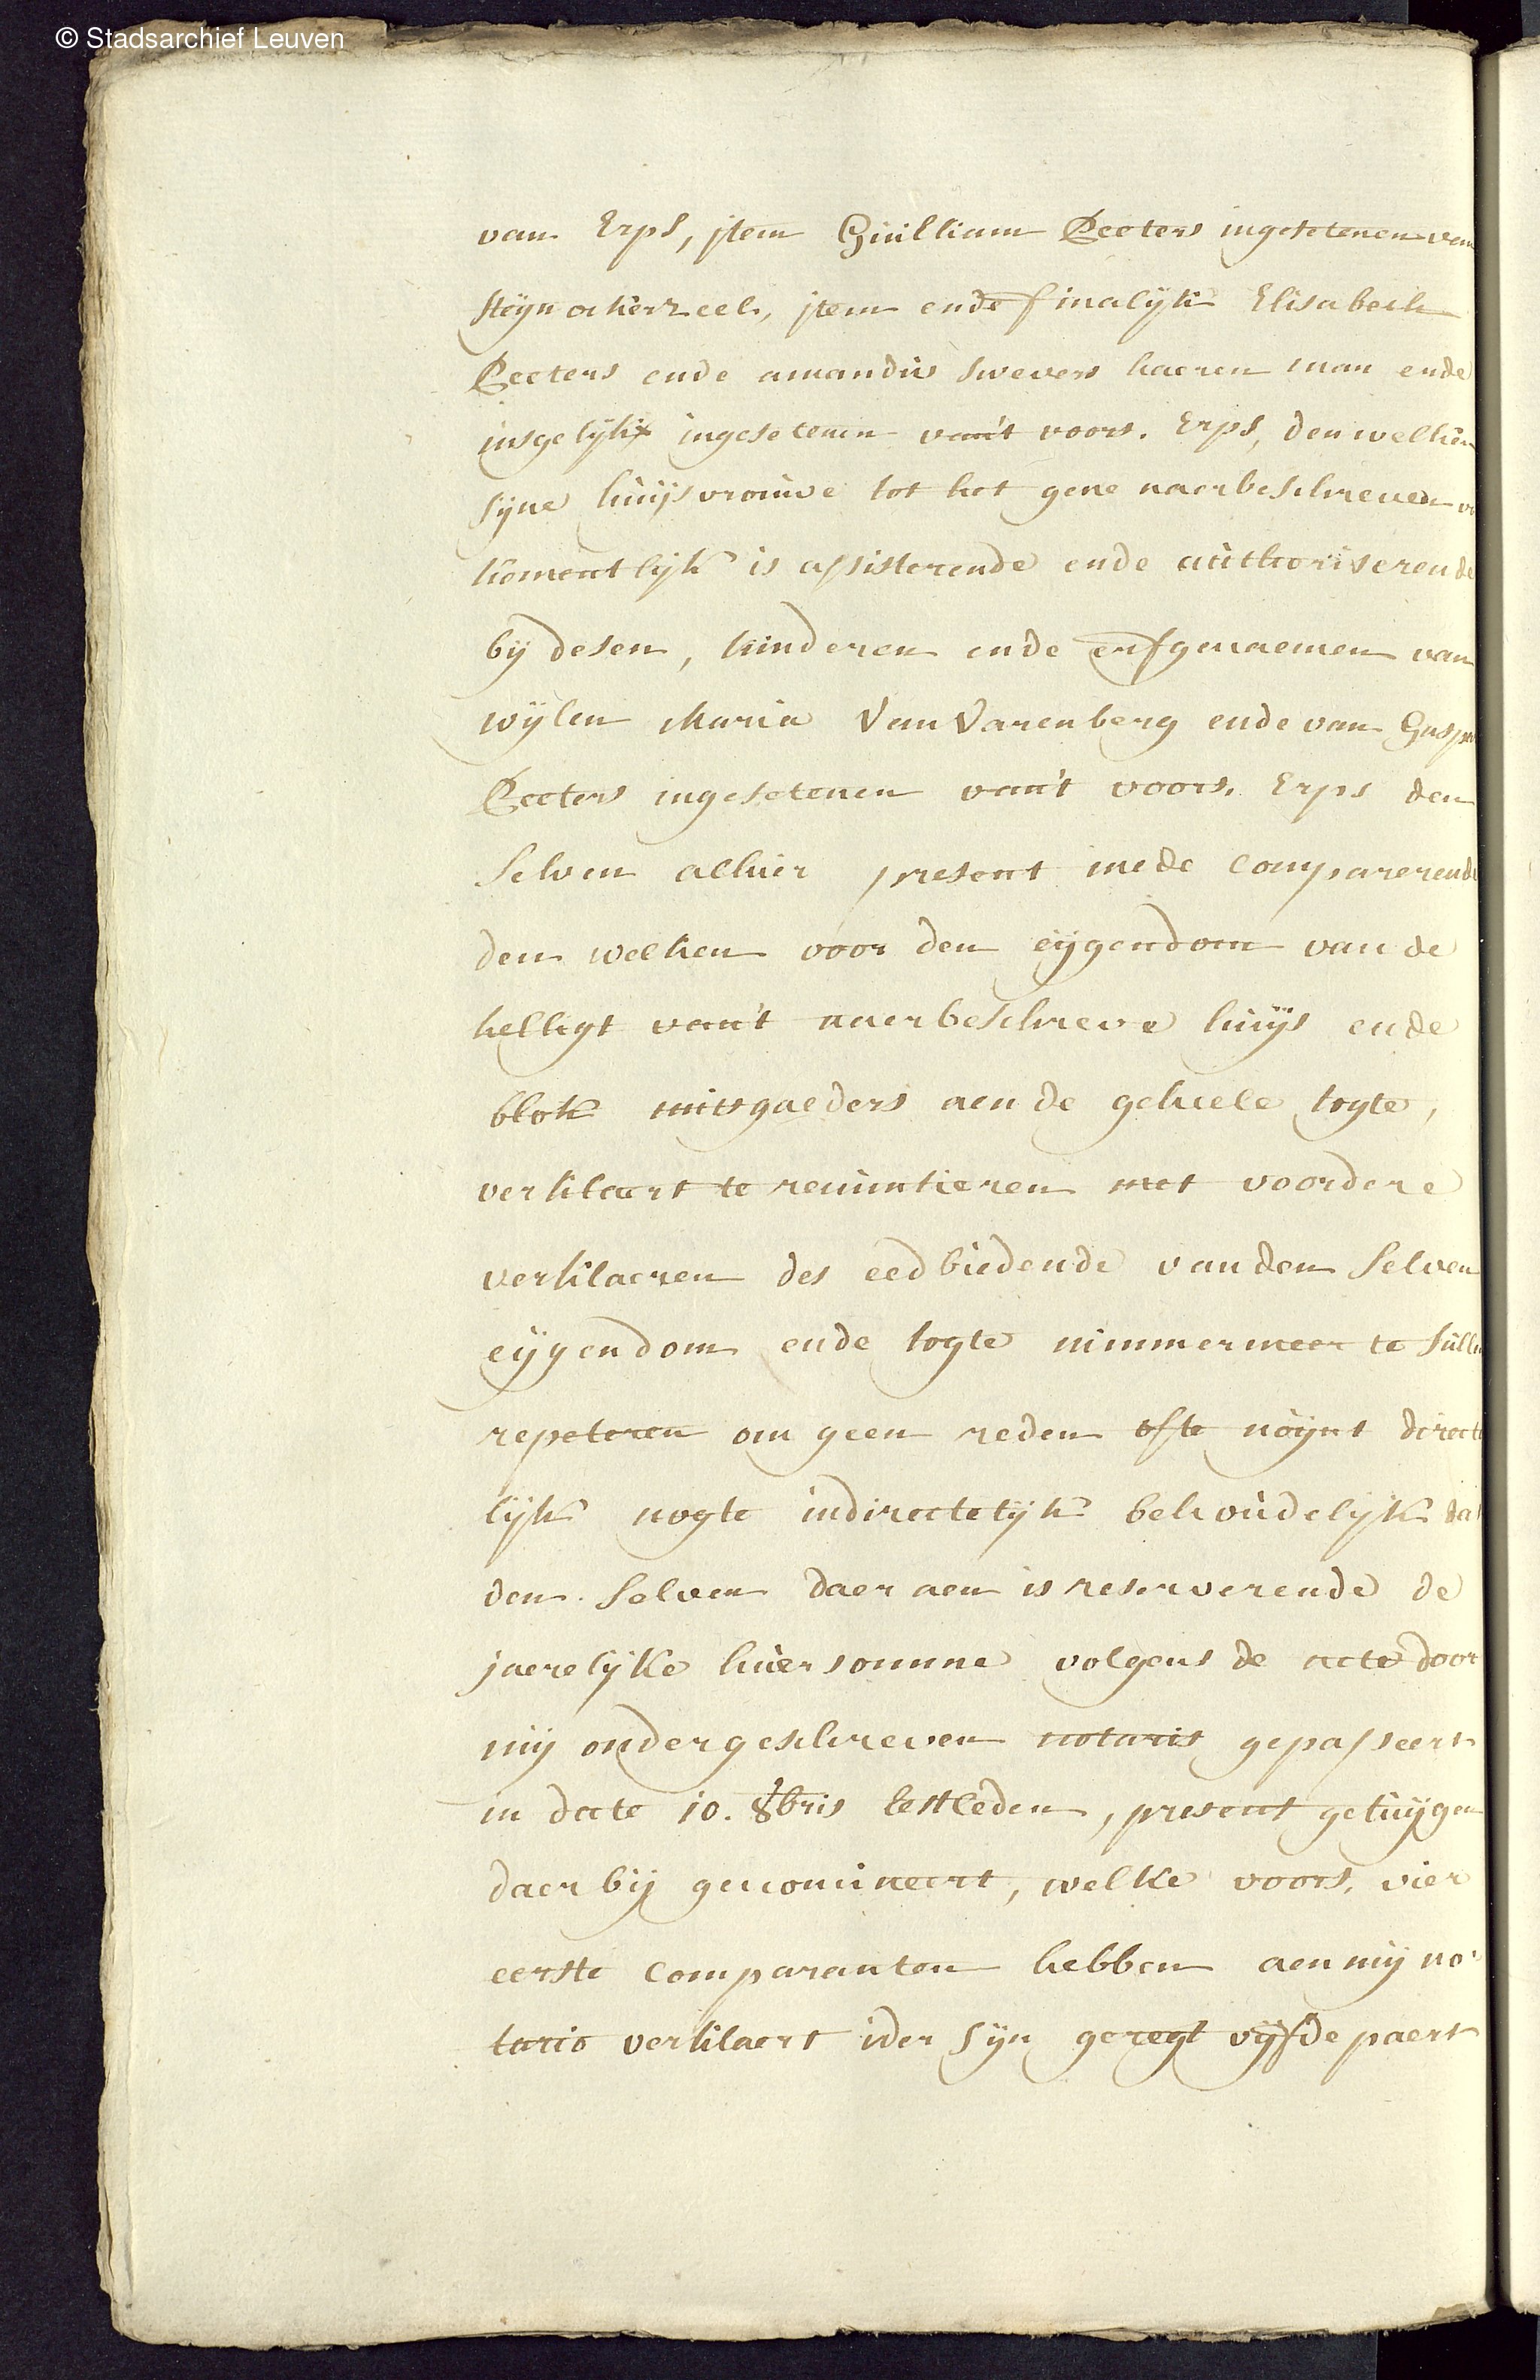 © Stadsarchief Leuven
van Erps, jtem Guilliam Peeters ingesetenen van
steynockerzeel, jtem ende finalijk Elisabeth
Peeters ende amandus swevers haeren man ende
insgelijkx ingesetenen van't voors. Erps, den welken
sijne huijsvrouwe tot het gene naerbeschreven vol
komentlijk is assisterende ende authoriserende
bij desen, kinderen ende erfgenaemen van
wijlen Maria Van Varenberg ende van Gaspar
Peeters ingesetenen van't voors. Erps den
selven alhier present mede comparerende
den welken voor den eijgendom van de
helligt van't naerbeschreve huijs ende
blok mitsgaeders aen de geheele togte,
verklaert te renuntieren met voordere
verklaeren des eedbiedende van den selven
eijgendom ende togte nimmermeer te sullen
repeteren om geen reden ofte noijnt directe
lijk nogte indirectelijk behoudelijk dat
den selven daer aen is reserverende de
jaerelijke huersomme volgens de acte door
mij ondergeschreven notaris gepasseert
in date 10. 8bris lestleden, present getuijgen
daer bij genomineert, welke voors. vier
eerste comparanten hebben aen mij no
taris verklaert ider sijn geregt vijfde paert